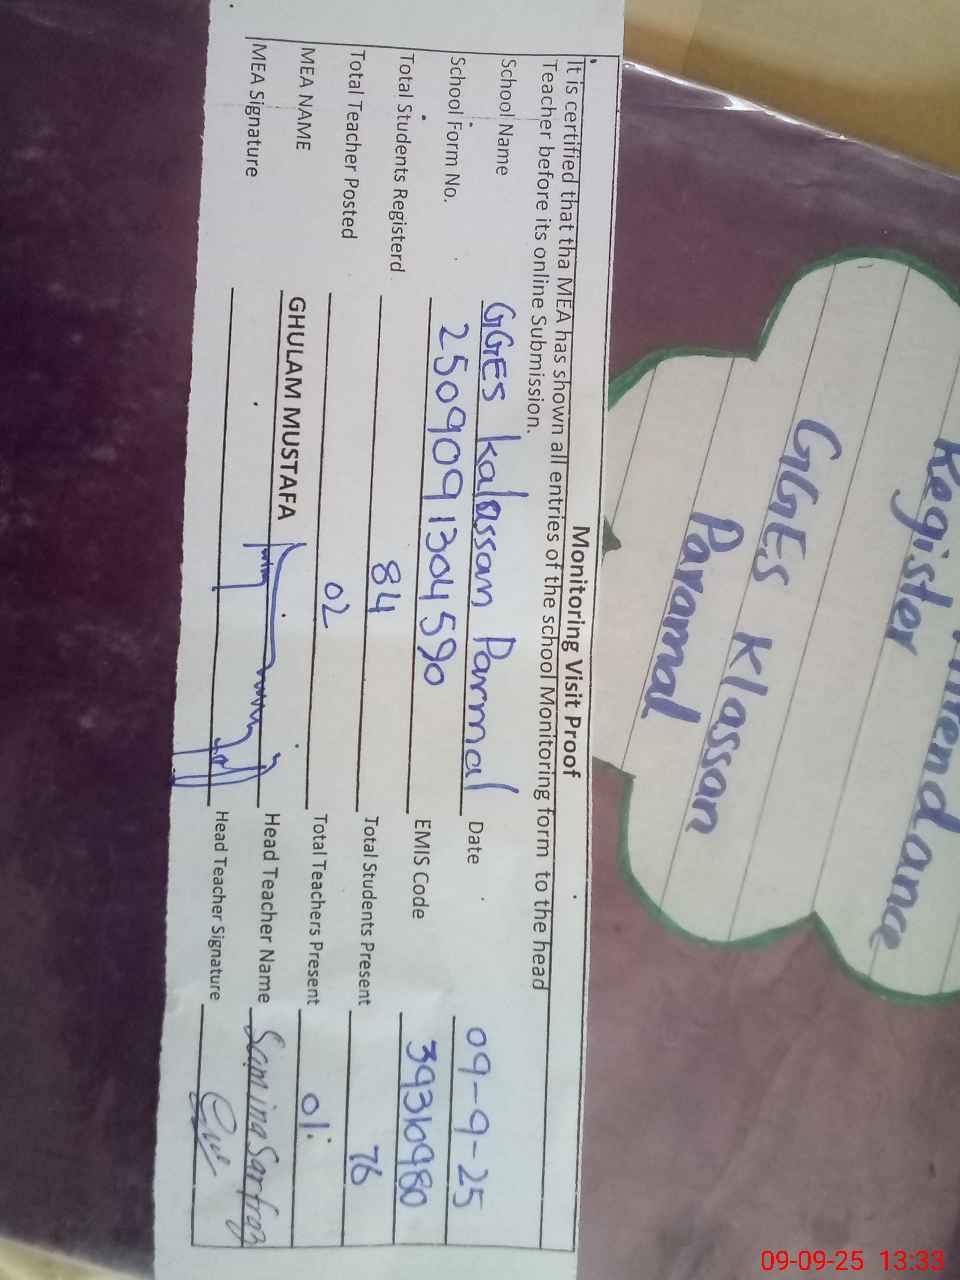 Attendance
Register
GGES Klassan
Paramal
Monitoring Visit Proof
It is certified that tha MEA has shown all entries of the school Monitoring form to the head
Teacher before its online Submission.
School Name GGES kalassan Parmal Date 09-9-25
School Form No. 2509091304590 EMIS Code
Total Students Registerd 84 Total Students Present 76
Total Teacher Posted 02 Total Teachers Present 01
MEA NAME GHULAM MUSTAFA Head Teacher Name Samina Sarfraz
MEA Signature Head Teacher Signature
09-09-25 13:33